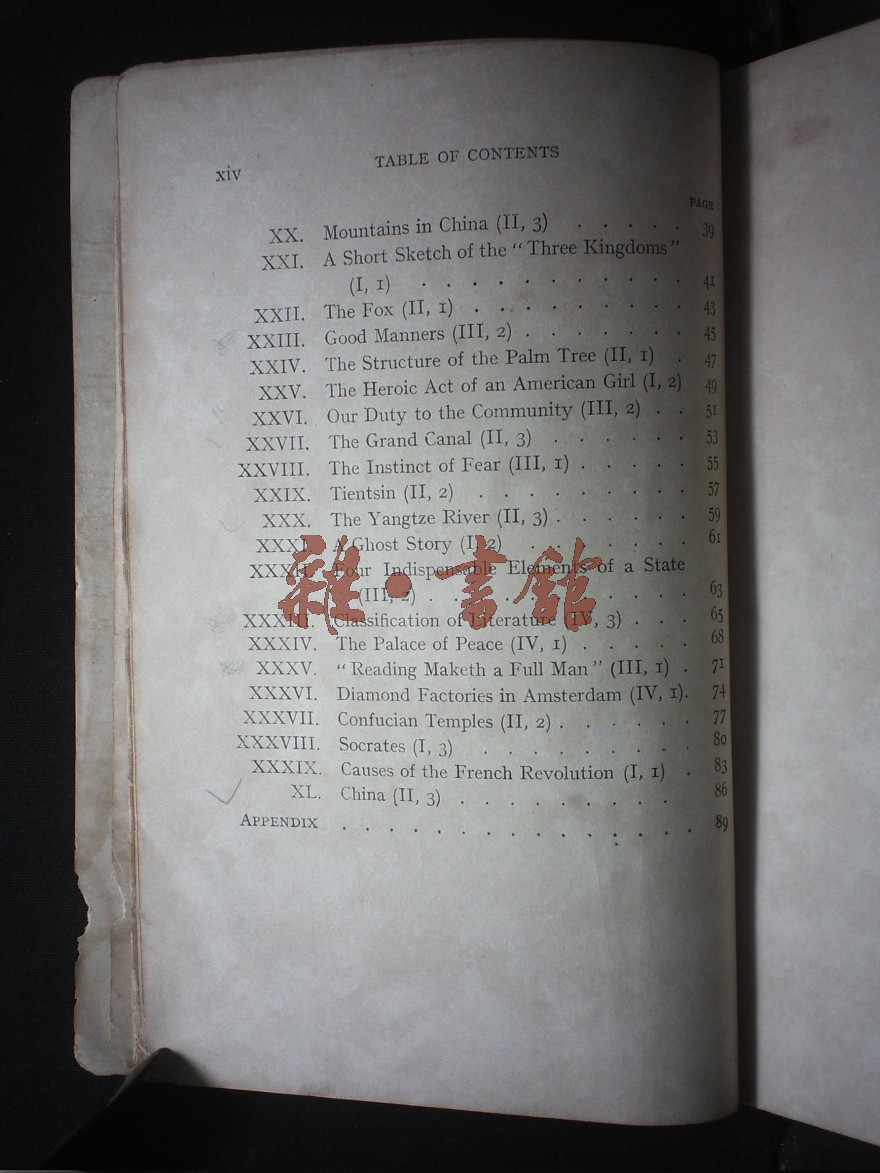 xiv
TABLE OF CONTENTS
PAGE
XX. Mountains in China (II, 3) . . . . . 39
XXI. A Short Sketch of the "Three Kingdoms"
(I, 1) . . . . . . . . . . 41
XXII. The Fox (II, 1) . . . . . . . . . 43
XXIII. Good Manners (III, 2) . . . . . . . 45
XXIV. The Structure of the Palm Tree (II, 1) . 47
XXV. The Heroic Act of an American Girl (I, 2) 49
XXVI. Our Duty to the Community (III, 2) . . 51
XXVII. The Grand Canal (II, 3) . . . . . . 53
XXVIII. The Instinct of Fear (III, 1) . . . . . 55
XXIX. Tientsin (II, 2) . . . . . . . . . 57
XXX. The Yangtze River (II, 3) . . . . . . 59
XXXI. A Ghost Story (I, 2) . . . . . . . 61
XXXII. Four Indispensable Elements of a State
(III, 2) . . . . . . . . . . 63
XXXIII. Classification of Literature (IV, 3) . . . 65
XXXIV. The Palace of Peace (IV, 1) . . . . . 68
XXXV. "Reading Maketh a Full Man" (III, 1) . 71
XXXVI. Diamond Factories in Amsterdam (IV, 1). 74
XXXVII. Confucian Temples (II, 2) . . . . . . 77
XXXVIII. Socrates (I, 3) . . . . . . . . . 80
XXXIX. Causes of the French Revolution (I, 1) . 83
XL. China (II, 3) . . . . . . . . . 86
APPENDIX . . . . . . . . . . . . . . . 89
雜·書館